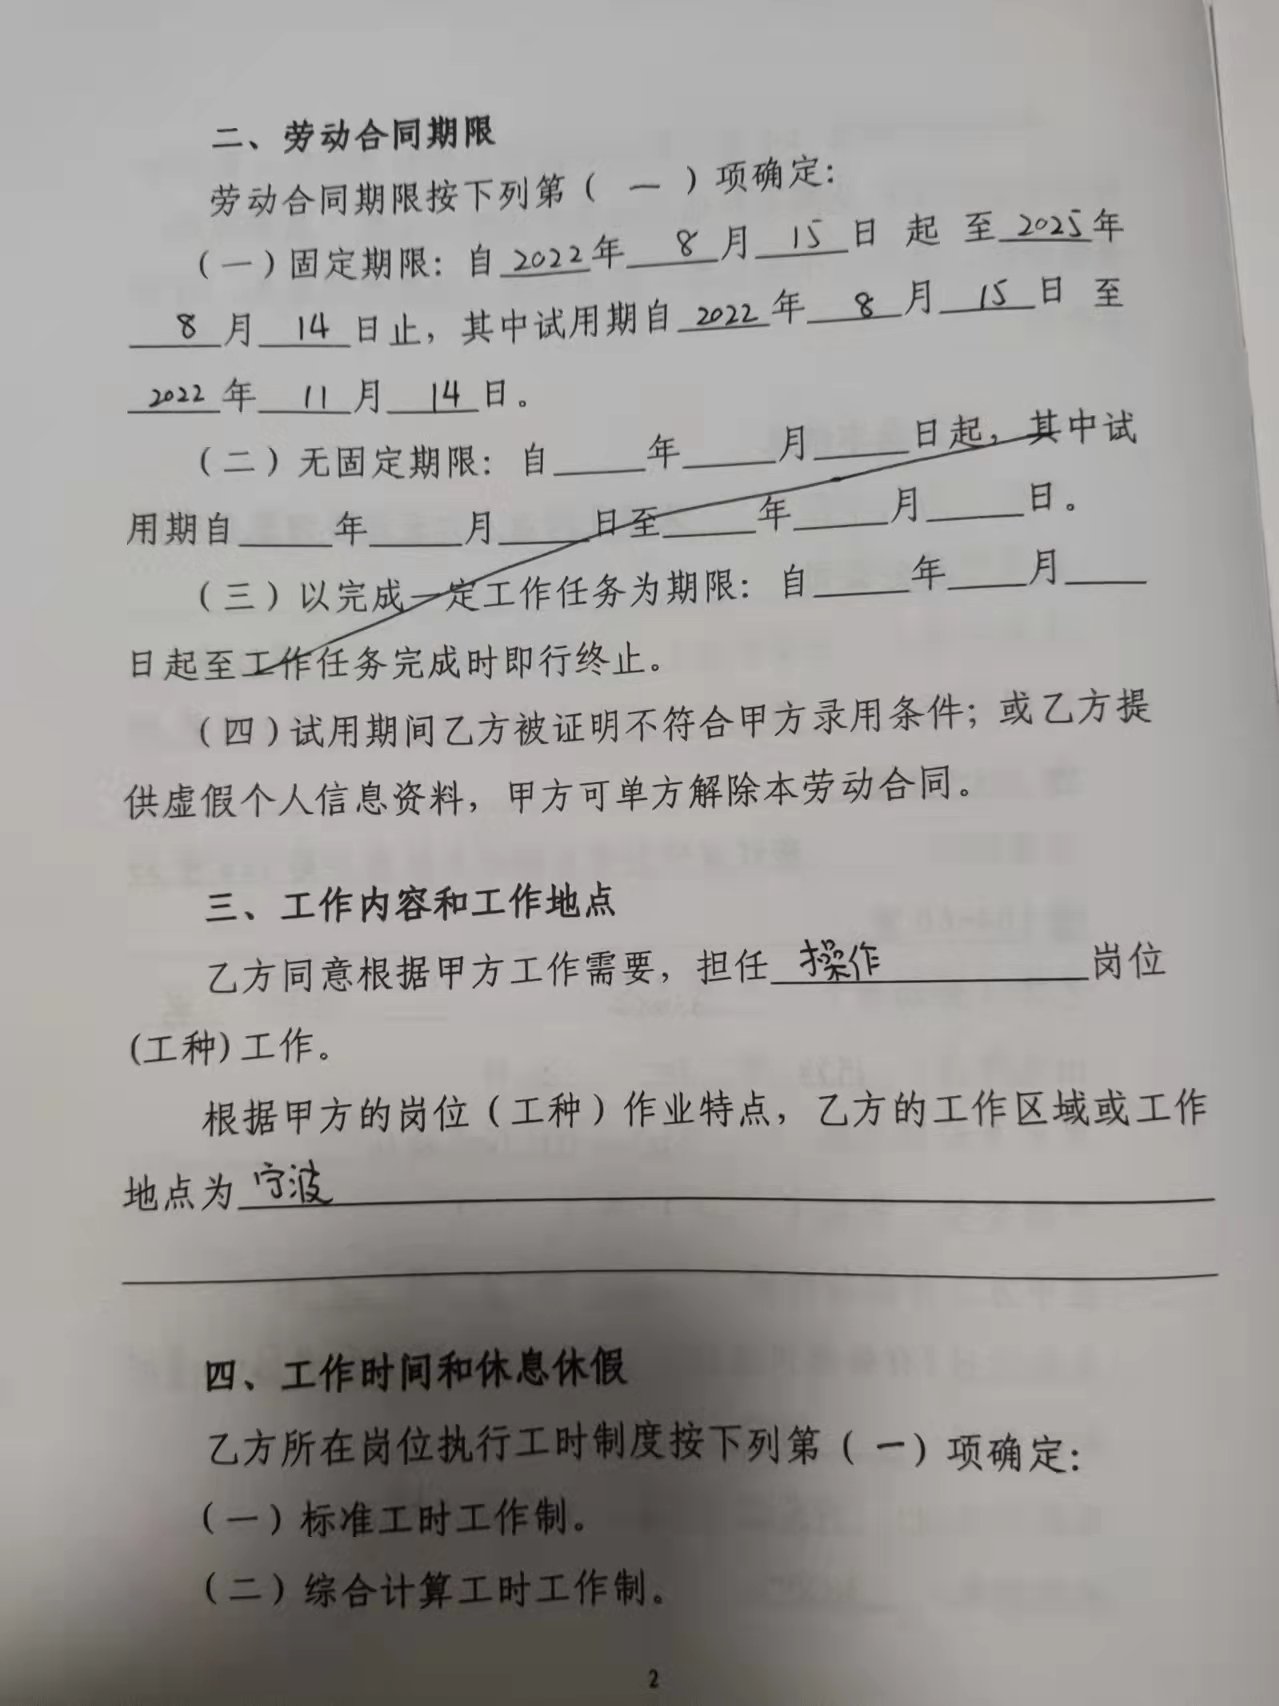 二、劳动合同期限
劳动合同期限按下列第（ 一 ）项确定：
（一）固定期限：自2022年 8 月 15 日 起 至 2025年
8 月 14 日止，其中试用期自 2022 年 8 月 15 日 至
2022 年 11 月 14 日。
（二）无固定期限：自____年____月____日起，其中试
用期自____年____月____日至____年____月____日。
（三）以完成一定工作任务为期限：自____年____月____
日起至工作任务完成时即行终止。
（四）试用期间乙方被证明不符合甲方录用条件；或乙方提
供虚假个人信息资料，甲方可单方解除本劳动合同。
三、工作内容和工作地点
乙方同意根据甲方工作需要，担任 操作 岗位
(工种)工作。
根据甲方的岗位（工种）作业特点，乙方的工作区域或工作
地点为 宁波
四、工作时间和休息休假
乙方所在岗位执行工时制度按下列第（ 一 ）项确定：
（一）标准工时工作制。
（二）综合计算工时工作制。
2